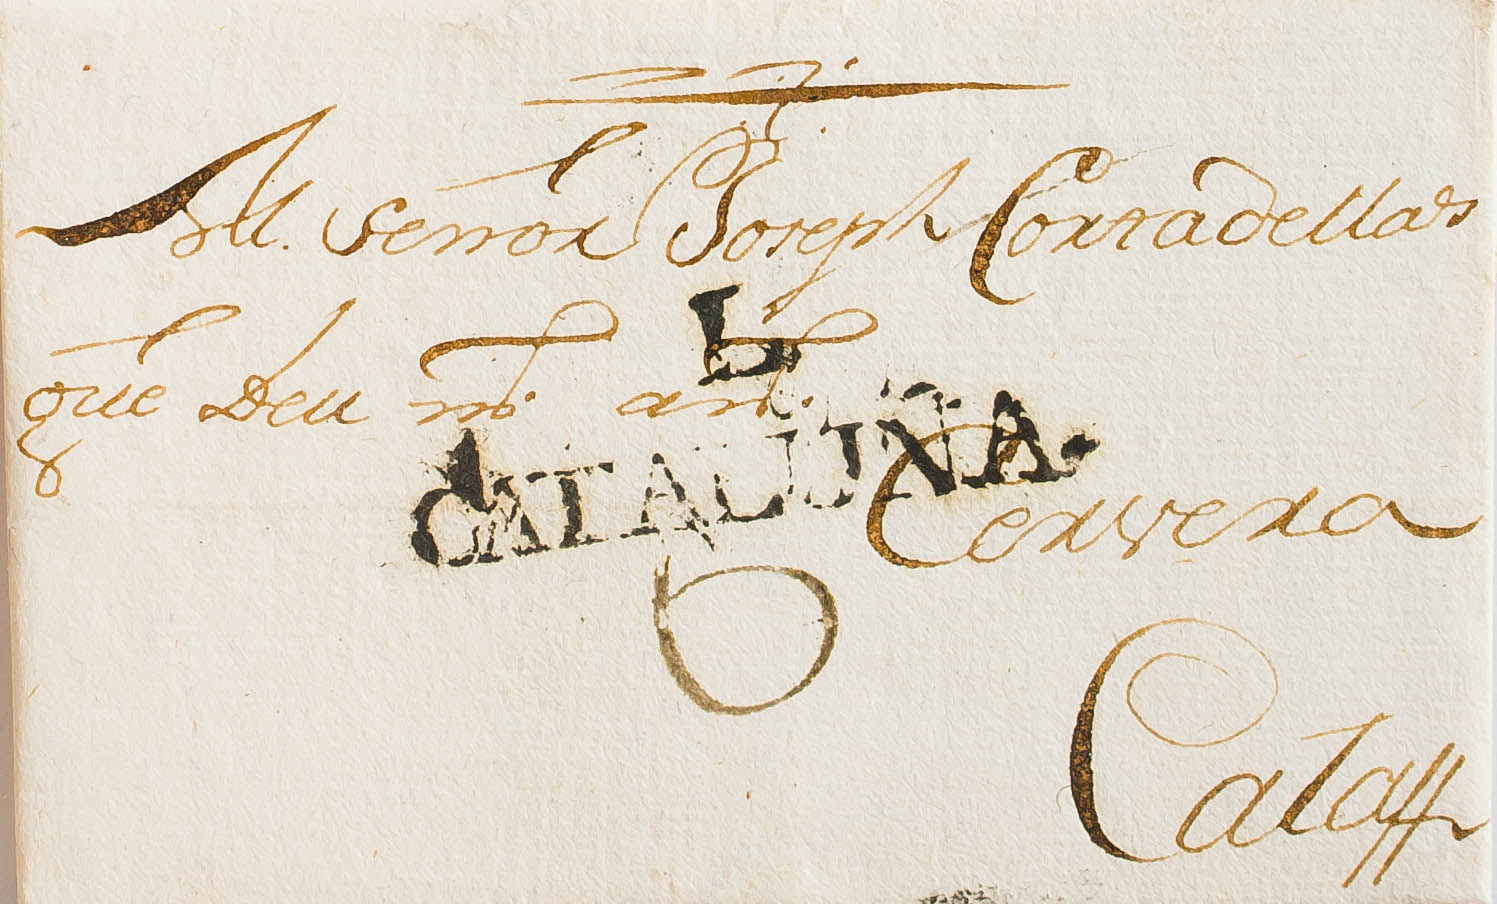 Al señor Joseph Corradellas
gue Deu m.s an.s
L
CATALUÑA.
Cervera
6
Calaff